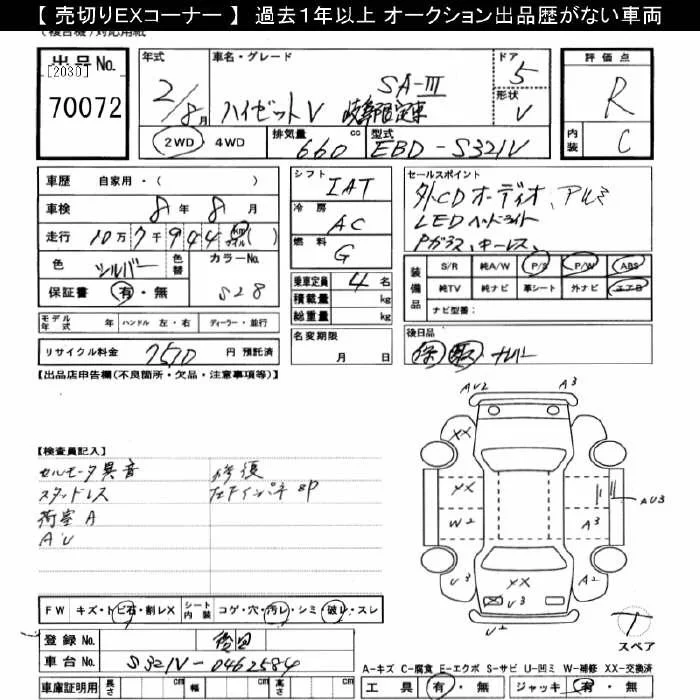 【 売切りEXコーナー 】 過去1年以上 オークション出品歴がない車両
(複合機)対応用紙
出品No. [2030] 70072
年式 2/8月
車名・グレード ハイゼットV SA-III 岐阜限定車
ドア 5
形状 V
評価点 R
内装 C
2WD ・ 4WD
排気量 660 cc
型式 EBD-S321V
車歴 自家用・( )
車検 8年 8月
走行 10万7千944 km マイル ( )
色 シルバー 色替 カラーNo. S28
保証書 有・無
シフト IAT
冷房 AC
燃料 G
乗車定員 4名
積載量 kg
総重量 kg
名変期限 月 日
セールスポイント
外CDオーディオ、アルミ
LEDヘッドライト
Pガラス、キーレス、
装備品 S/R 純A/W P/S P/W ABS
純TV 純ナビ 革シート 外ナビ エアB
ナビ型番:
モデル年式 年 ハンドル 左・右 ディーラー・並行
リサイクル料金 7510 円 預託済
後日品
保 取 ナンバー
【出品店申告欄(不良箇所・欠品・注意事項等)】
【検査員記入】
セルモータ異音 修復
スタッドレス 左Fインパネ SP
荷室A
AU
AU2 A3
XX
XX AU3
W2 A3
U3 XX A2
U3
U2
スペア
FW キズ・トビ石・割レX シート内装 コゲ・穴・汚レ・シミ・破レ・スレ
登録No. 後日
車台No. S321V-0462584
車庫証明用 長さ cm 幅 cm 高さ cm
A-キズ C-腐食 E-エクボ S-サビ U-凹ミ W-補修 XX-交換済
工具 有・無 ジャッキ 有・無